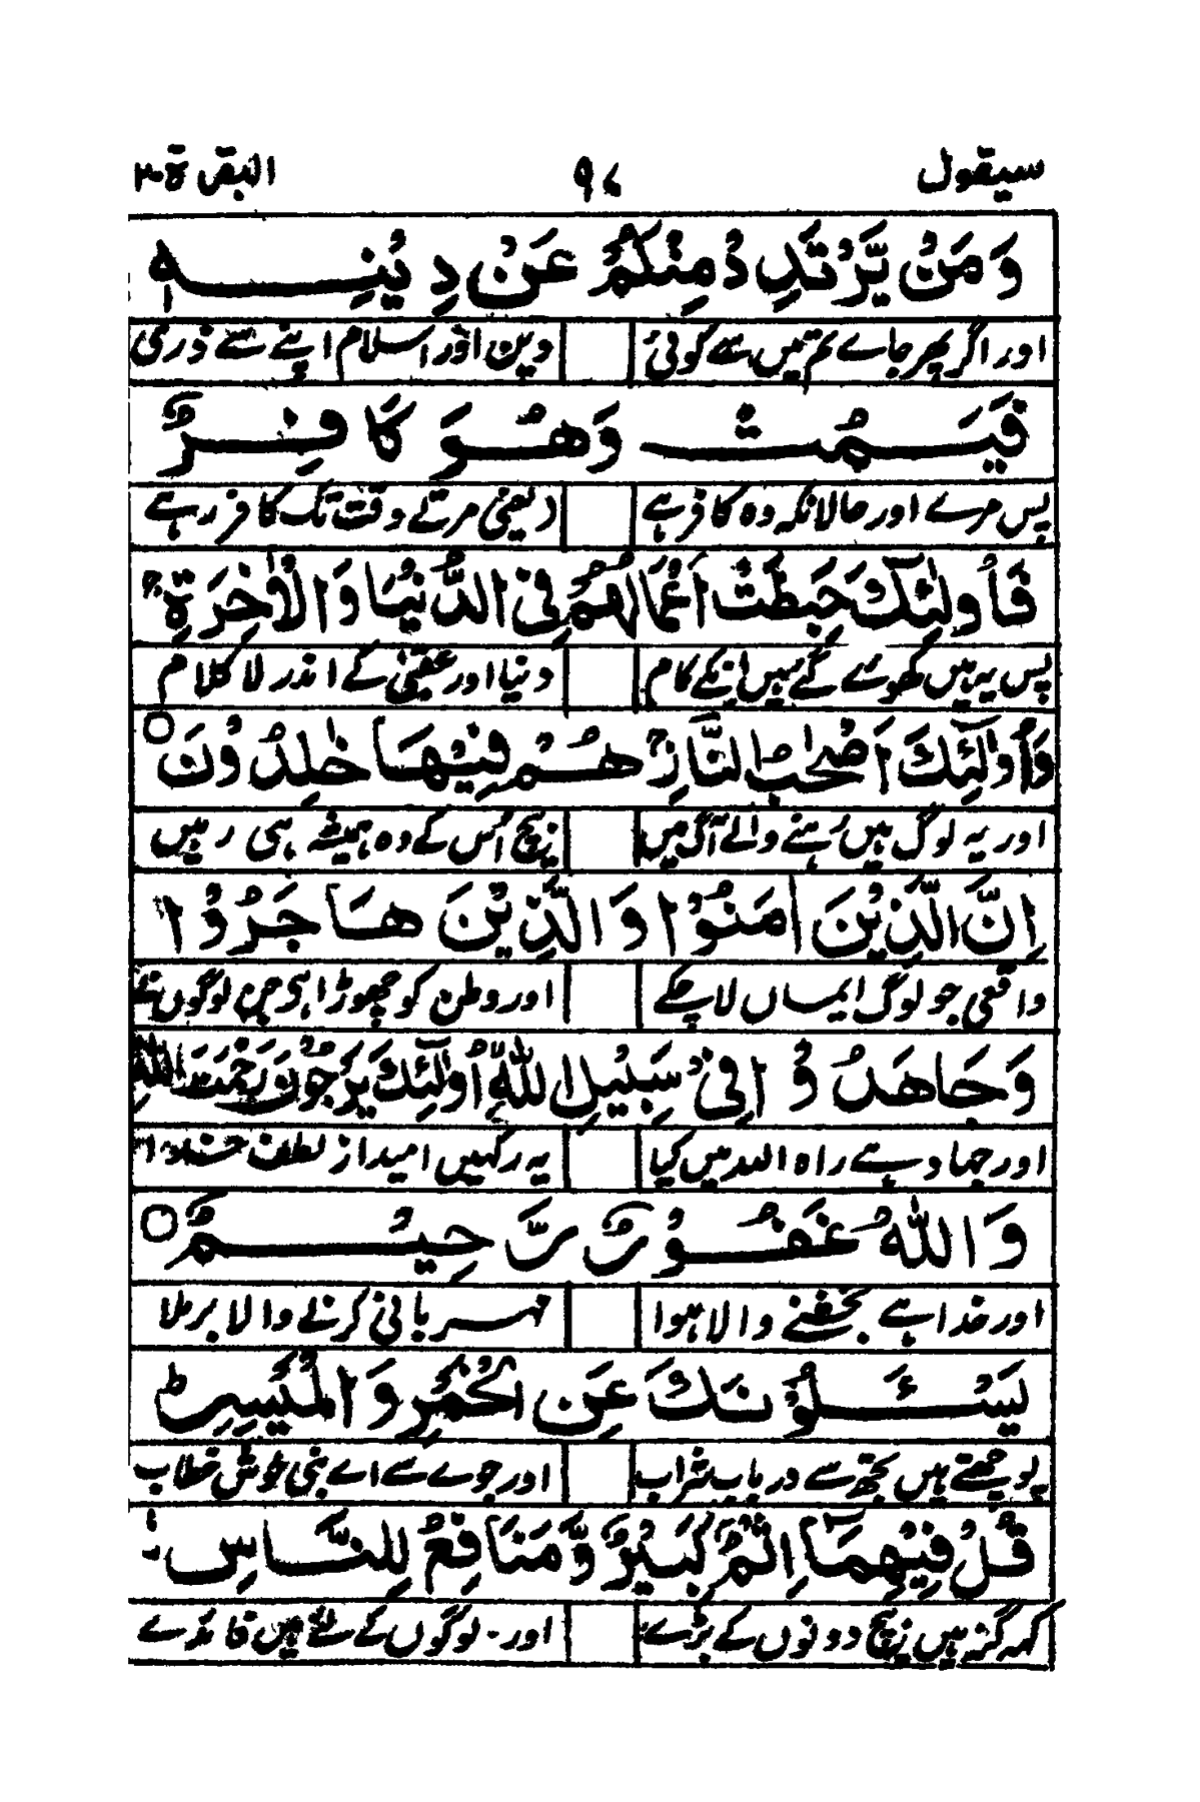 سیقول ۹۷ البقرة ۲
وَمَنْ يَّرْتَدِدْ مِنْكُمْ عَنْ دِيْنِهٖ
اور اگر پھر جاے تم میں سے کوئی دین اور اسلام اپنے سے
فَيَمُتْ وَهُوَ كَافِرٌ
پس مرے اور حالانکہ وہ کافر ہے یعنی مرتے وقت تک کافر رہے
فَاُولٰٓئِكَ حَبِطَتْ اَعْمَالُهُمْ فِي الدُّنْيَا وَالْاٰخِرَةِ ج
پس یہ ہیں کھوے گئے ہیں انکے کام دنیا اور عقبیٰ کے اندر لا کلام
وَاُولٰٓئِكَ اَصْحٰبُ النَّارِ ج هُمْ فِيْهَا خٰلِدُوْنَ ○
اور یہ لوگ ہیں رہنے والے آگ میں بیچ اُس کے وہ ہمیشہ ہی رہیں
اِنَّ الَّذِيْنَ اٰمَنُوْا وَالَّذِيْنَ هَاجَرُوْا
واقعی جو لوگ ایماں لا چکے اور وطن کو چھوڑا ہی جن لوگوں نے
وَجَاهَدُوْا فِيْ سَبِيْلِ اللّٰهِ اُولٰٓئِكَ يَرْجُوْنَ رَحْمَتَ اللّٰهِ
اور جہاد ہے راہ اللہ میں کیا یہ رکہیں امید از لطف خدا
وَاللّٰهُ غَفُوْرٌ رَّحِيْمٌ ○
اور خدا ہے بخشنے والا ہوا مہربانی کرنے والا برملا
يَسْـَٔلُوْنَكَ عَنِ الْخَمْرِ وَالْمَيْسِرِ ط
پوچھتے ہیں تجھ سے در باب شراب اور جوے سے اے نبی خوش خطاب
قُلْ فِيْهِمَآ اِثْمٌ كَبِيْرٌ وَّمَنَافِعُ لِلنَّاسِ
کہہ گنہ ہیں بیچ دونوں کے بڑے اور لوگوں کے لئے ہیں فائدے